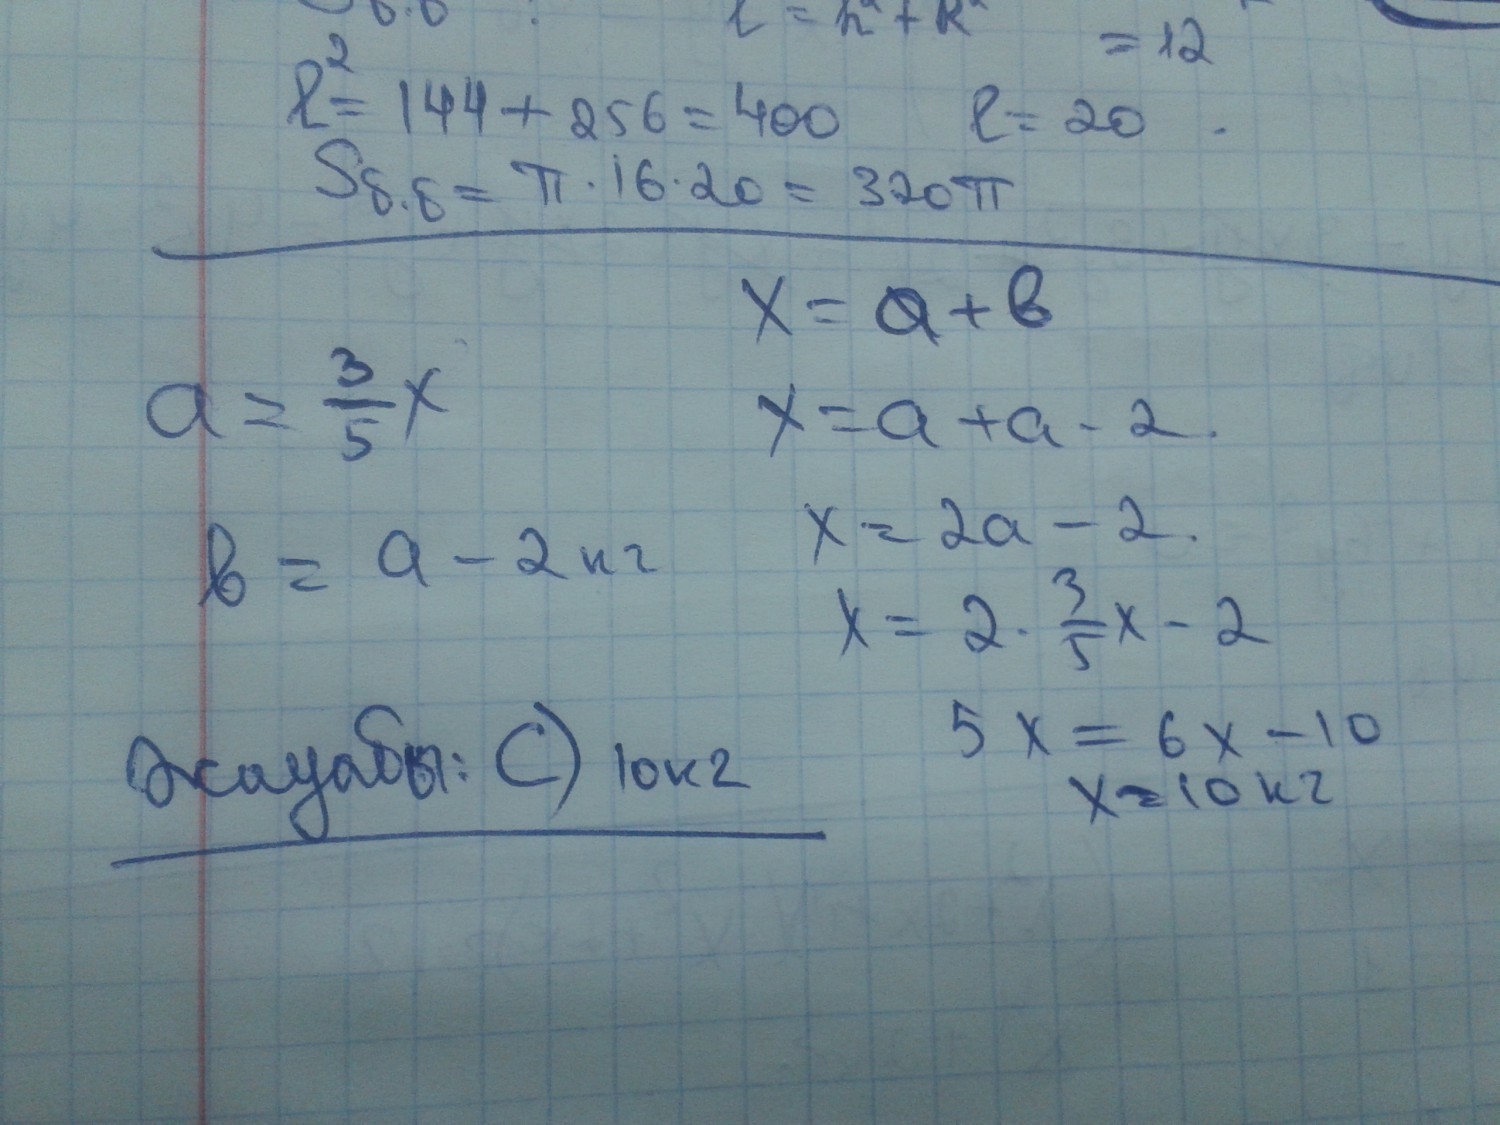 Sб.б l = h² + R² = 12
l² = 144 + 256 = 400 l = 20
Sб.б = π · 16 · 20 = 320π
x = a + b
a = 3/5 x x = a + a - 2.
b = a - 2 кг x = 2a - 2.
x = 2 · 3/5 x - 2
5x = 6x - 10
Жауабы: С) 10 кг x = 10 кг